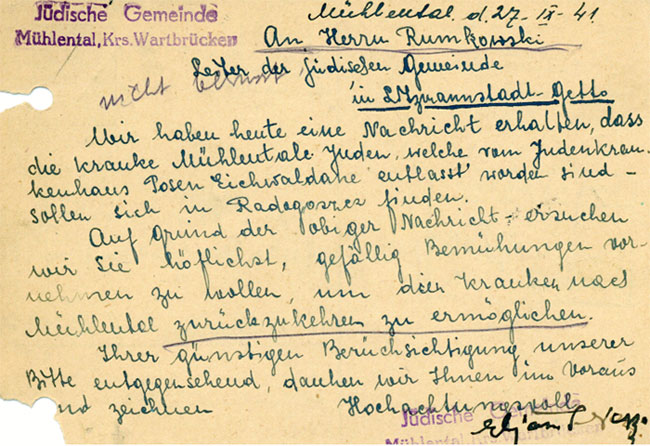 Jüdische Gemeinde
Mühlental, Krs. Wartbrücken
Mühlental, d. 27-IX-41
An Herrn Rumkowski
Leiter der Jüdischen Gemeinde
nicht
in Litzmannstadt-Getto
Wir haben heute eine Nachricht erhalten, dass
die kranke Mühlentale Juden, welche vom Judenkran-
kenhaus Posen entlasst worden sind -
sollen sich in Radogoszcz finden.
Auf Grund der obiger Nachricht ersuchen
wir Sie höflichst, gefällig Bemühungen vor-
nehmen zu wollen, um dien Kranken nach
Mühlental zurückzukehren zu ermöglichen.
Ihrer günstigen Berücksichtigung unserer
Bitte entgegensehend, danken wir Ihnen im Voraus
und zeichnen Hochachtungsvoll
Jüdische Gemeinde
Mühlental, Krs. Wartbrücken